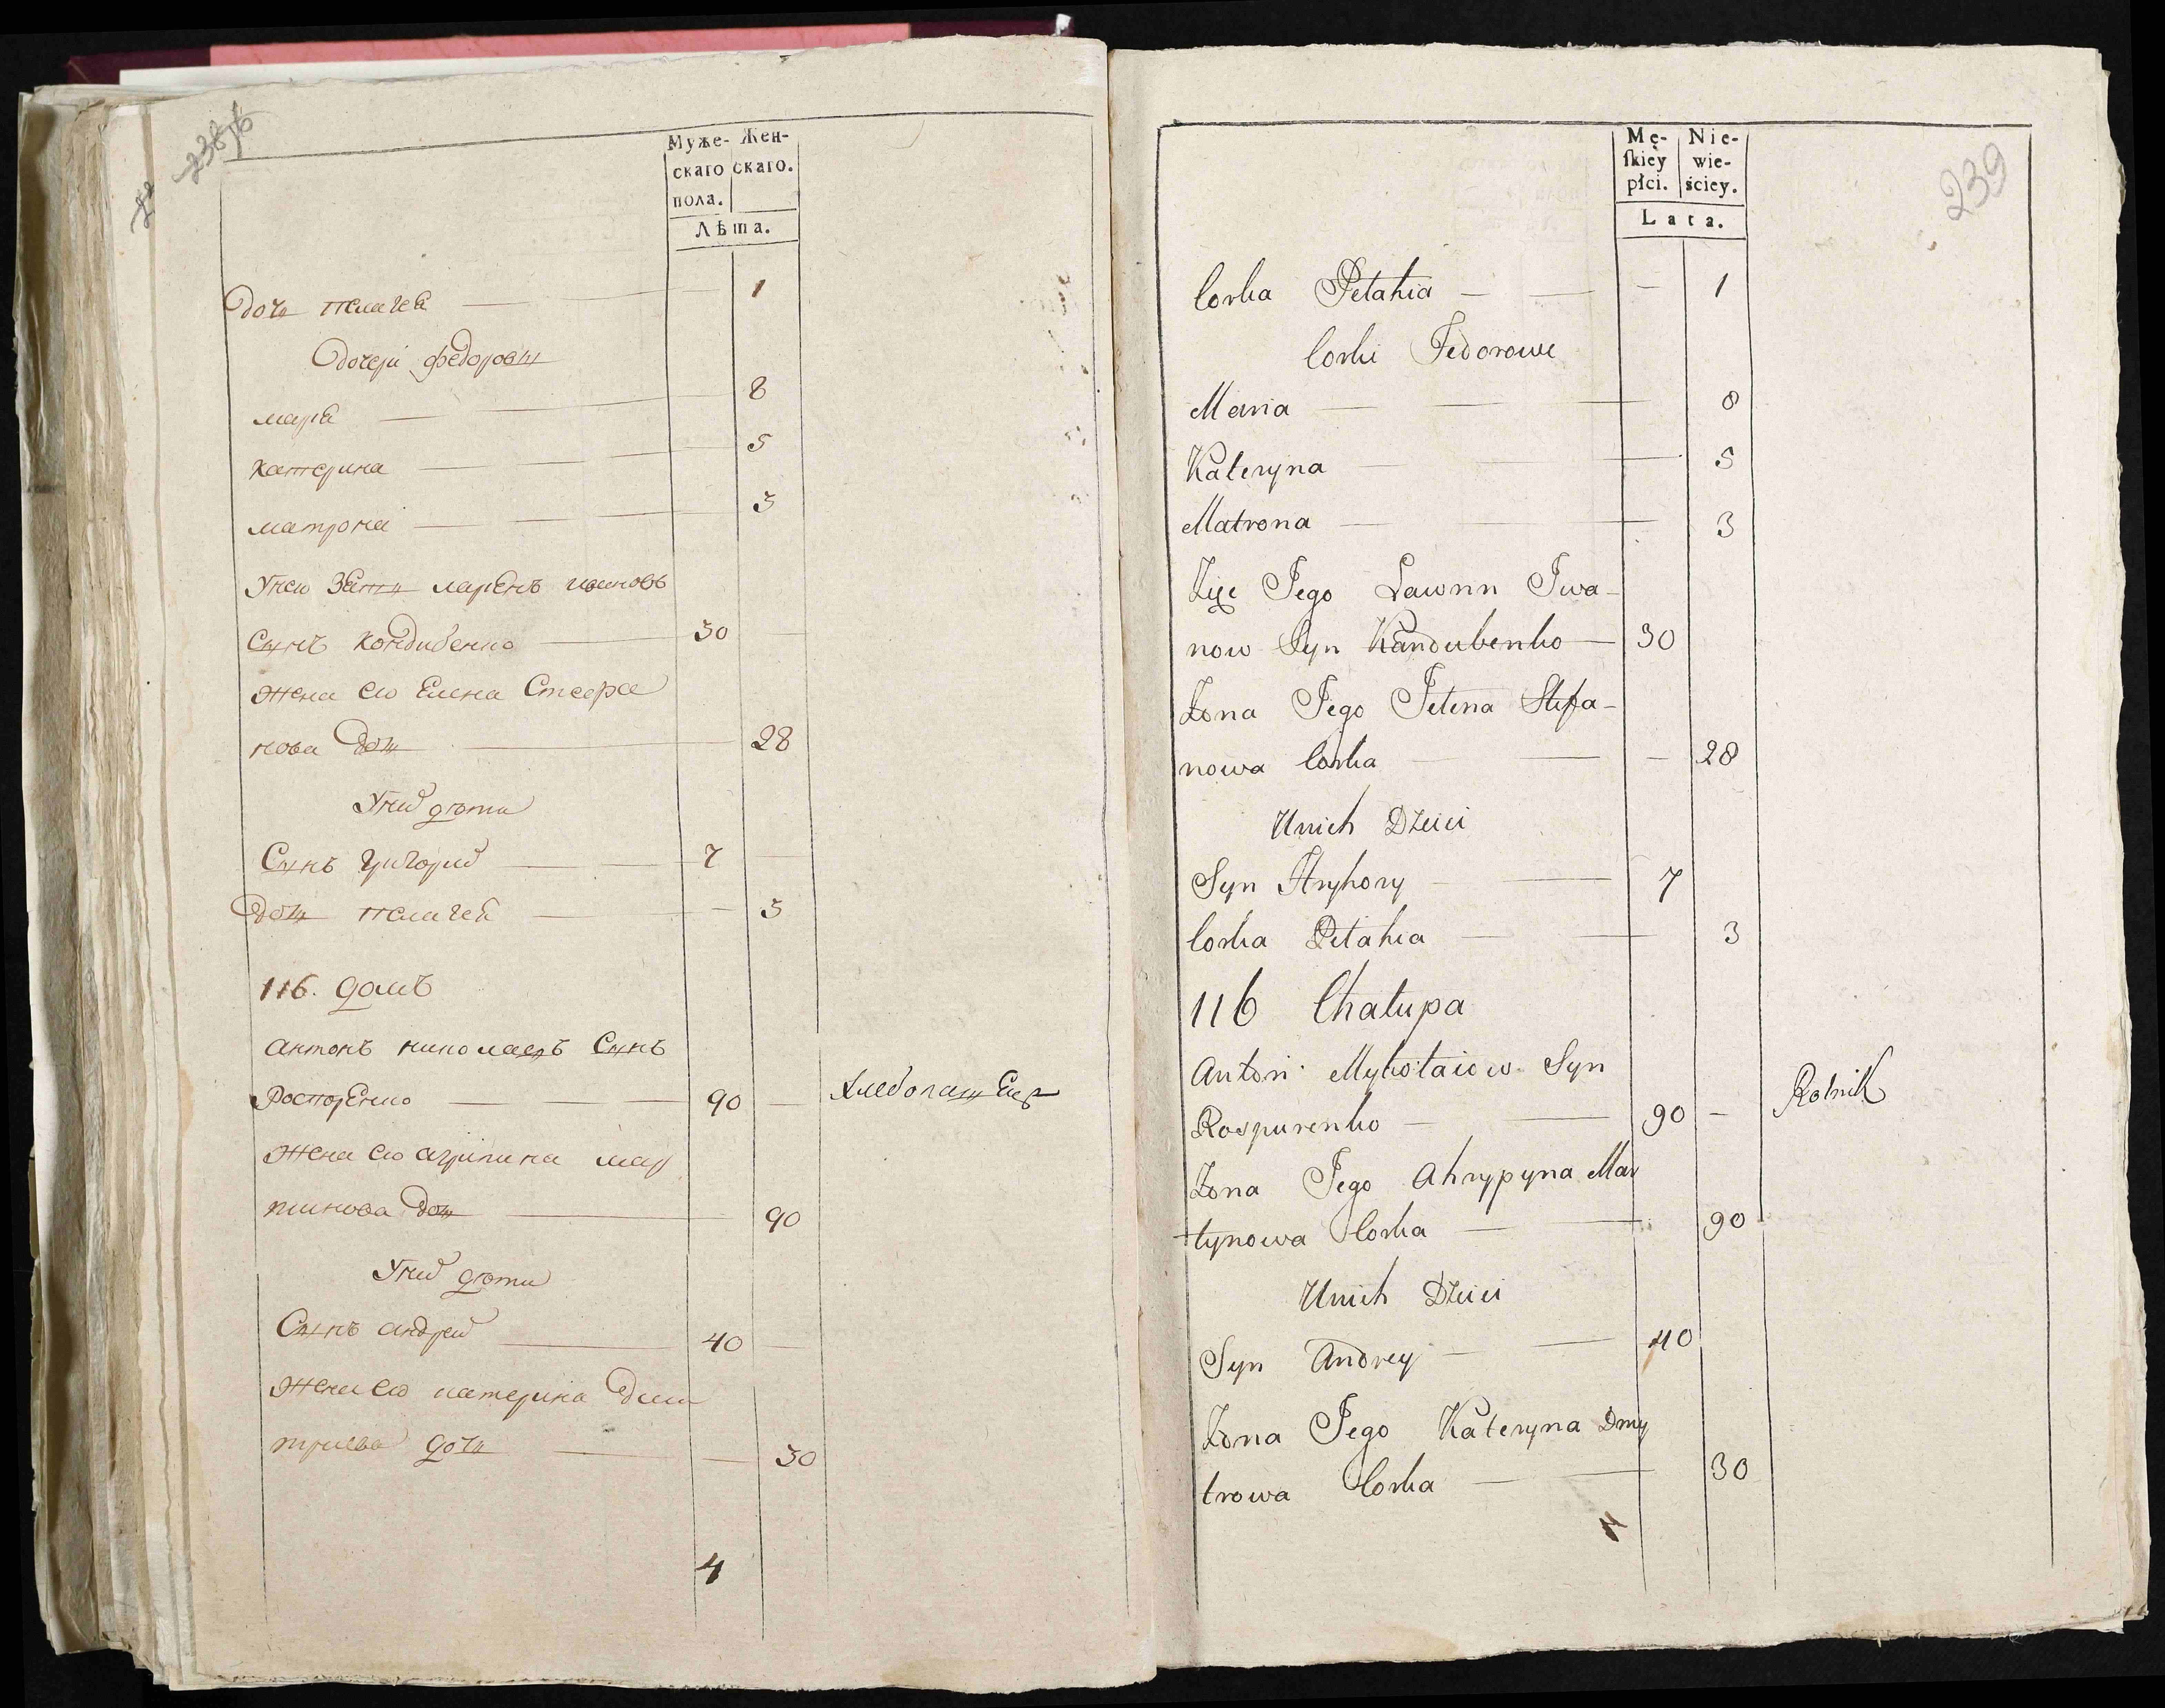 238
Муже- Жен-
скаго скаго.
пола.
Лѣта.
дочь пелагея — 1
дочери федоровы
маря — 8
катерина — 5
матрона — 3
Унего Зять ивановъ
Сынъ кондубенко — 30
жена его Елена Стефа
нова дочь — 28
Уних дѣти
Сынъ григорий — 7
дочь пелагея — 3
116. домъ
антонъ николаевъ Сынъ
Роспоренко — 90
жена его агрипина мар
тинова дочь — 90
Уних дѣти
Сынъ андрей — 40
жена его катерина дми
триева дочь — 30
4
239
Mę- Nie-
skiey wie-
płci. sciey.
Lata.
Corka Pelahia — 1
Corki Fedorowe
Maria — 8
Kateryna — 5
Matrona — 3
Zięc Jego Iwa-
now Syn Kandubenko — 30
Żona Jego Jelena Stefa-
nowa Corka — 28
Unich Dzieci
Syn Hryhory — 7
Corka Pelahia — 3
116 Chałupa
Anton Mykołaiow Syn
Rospurenko — 90 — Rolnik
Żona Jego Ahrypyna Mar
tynowa Corka — 90
Unich Dzieci
Syn Andrey — 40
Żona Jego Kateryna Dmy
trowa Corka — 30